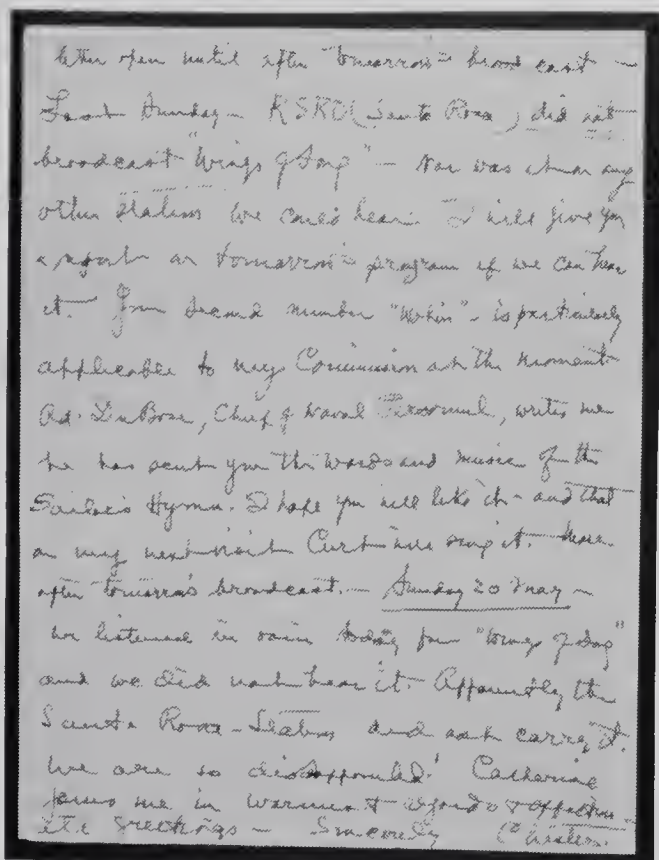 letter open until after "tomorrow's" broadcast —
Last Sunday — KSRO (Santa Rosa) did not
broadcast "Wings of Song" — Nor was it on any
other station we could hear. I will give you
a report on tomorrow's program if we can hear
it. Your second number "Mokin" — is particularly
applicable to my Commission at the moment
Ad. DuBose, Chief of Naval Personnel, writes me
he has sent you the words and music of the
Sailor's Hymn. I hope you will like it — and that
on my next visit Curt will sing it. More
after tomorrow's broadcast. — Sunday 20 May —
We listened in vain today for "Wings of Song"
and we did not hear it. Apparently the
Santa Rosa — Station did not carry it.
We are so disappointed! Catherine
joins me in warmest regards & affectionate
greetings — Sincerely Chester.